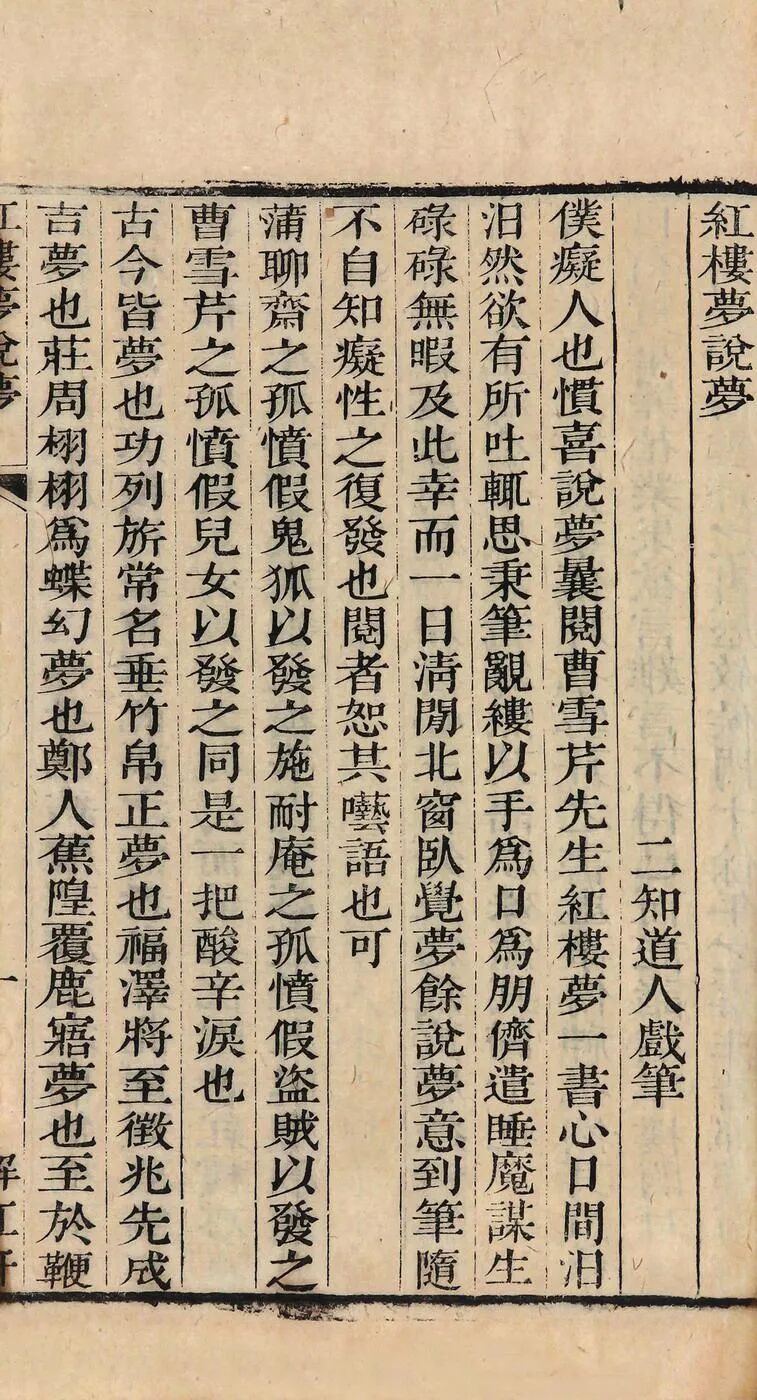 紅樓夢說夢
二知道人戲筆
僕癡人也慣喜說夢曩閱曹雪芹先生紅樓夢一書心口間汩
汩然欲有所吐輒思秉筆覼縷以手爲口爲朋儕遣睡魔謀生
碌碌無暇及此幸而一日淸閒北窗臥覺夢餘說夢意到筆隨
不自知癡性之復發也閱者恕其囈語也可
蒲聊齋之孤憤假鬼狐以發之施耐庵之孤憤假盜賊以發之
曹雪芹之孤憤假兒女以發之同是一把酸辛淚也
古今皆夢也功列旂常名垂竹帛正夢也福澤將至徵兆先成
吉夢也莊周栩栩爲蝶幻夢也鄭人蕉隍覆鹿寤夢也至於鞭
紅樓夢說夢
一
解紅軒